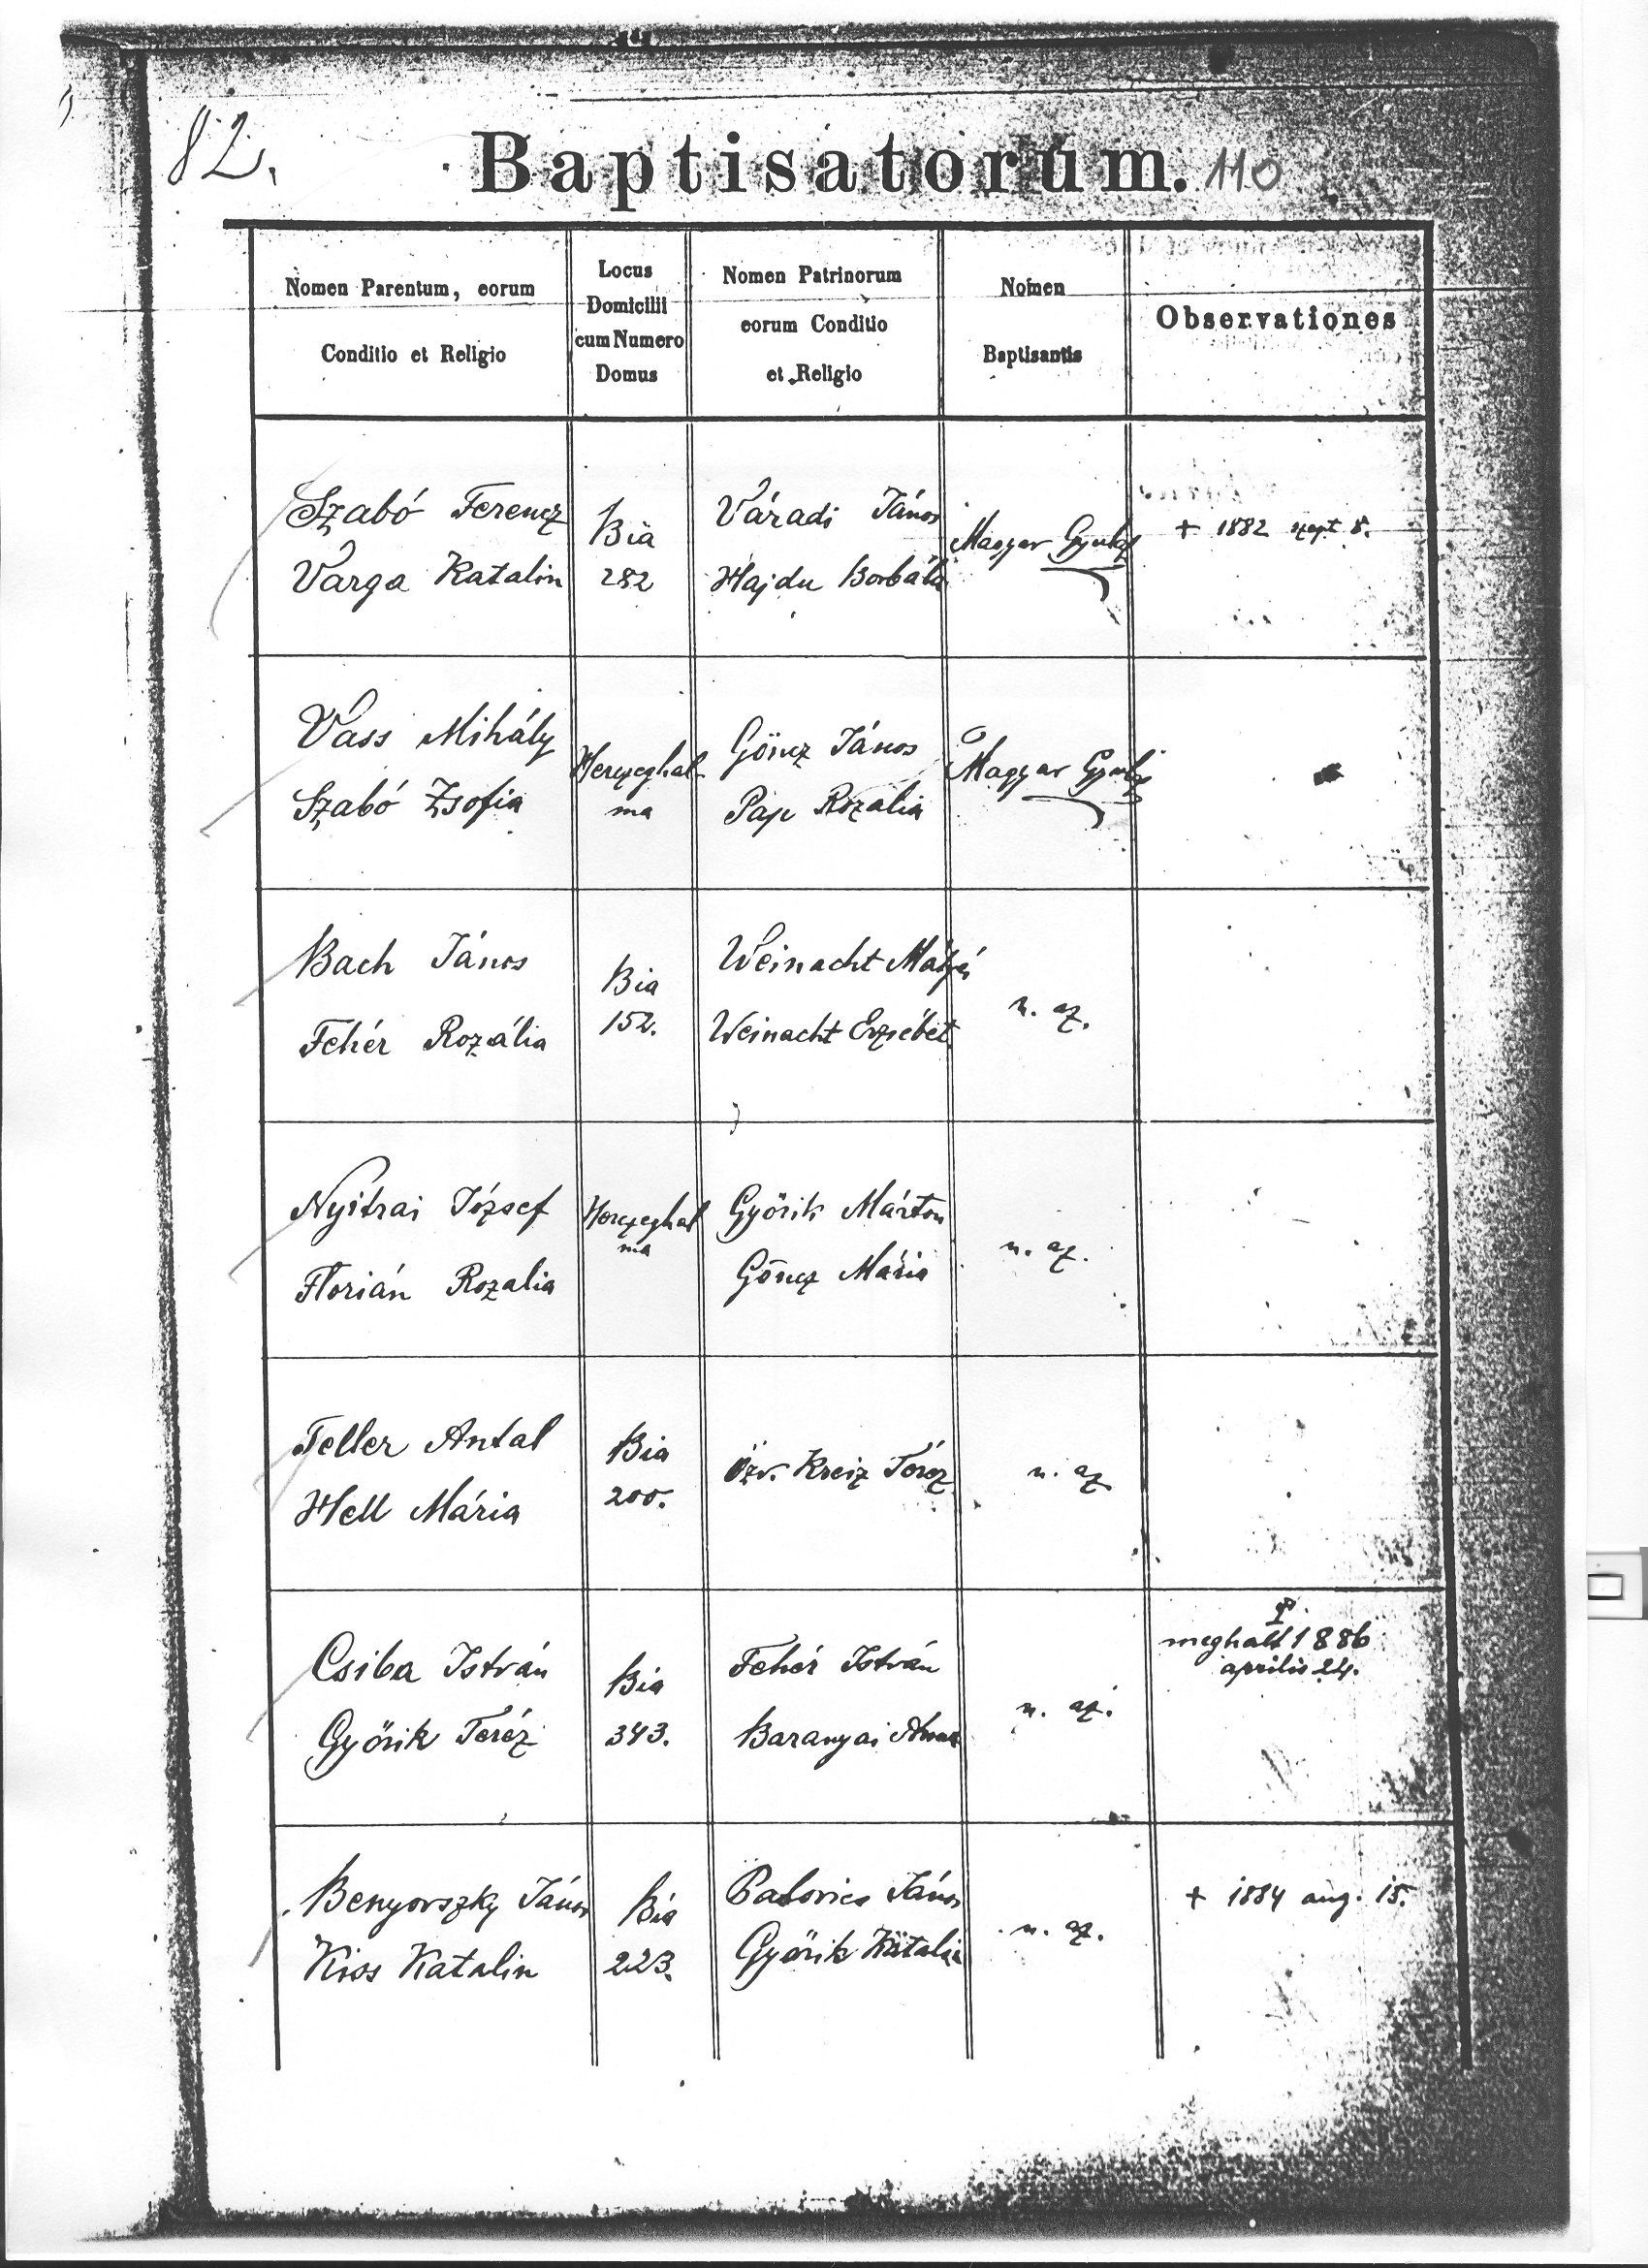 82.
Baptisatorum. 110
Nomen Parentum, eorum
Conditio et Religio
Locus
Domicilii
cum Numero
Domus
Nomen Patrinorum
eorum Conditio
et Religio
Nomen
Baptisantis
Observationes
Szabó Ferencz
Varga Katalin
Bia
282
Váradi János
Hajdu Borbála
Magyar Gyula
+ 1882 sept 8.
Vass Mihály
Szabó Zsofia
Herczeghal
ma
Göncz János
Pap Rozalia
Magyar Gyula
Bach János
Fehér Rozália
Bia
152.
Weinacht Mátyás
Weinacht Erzsébet
u. az.
Nyitrai József
Florián Rozalia
Herczeghal
ma
Györik Márton
Göncz Mária
u. az.
Teller Antal
Hell Mária
Bia
200.
özv. Kreiz Teréz
u. az
Csiba István
Györik Teréz
Bia
343.
Fehér István
Baranyai Anna
u. az.
meghalt 1886
április 24.
Benyovszky János
Kiss Katalin
Bia
223.
Palovics János
Györik Katalin
u. az.
+ 1884 aug. 15.